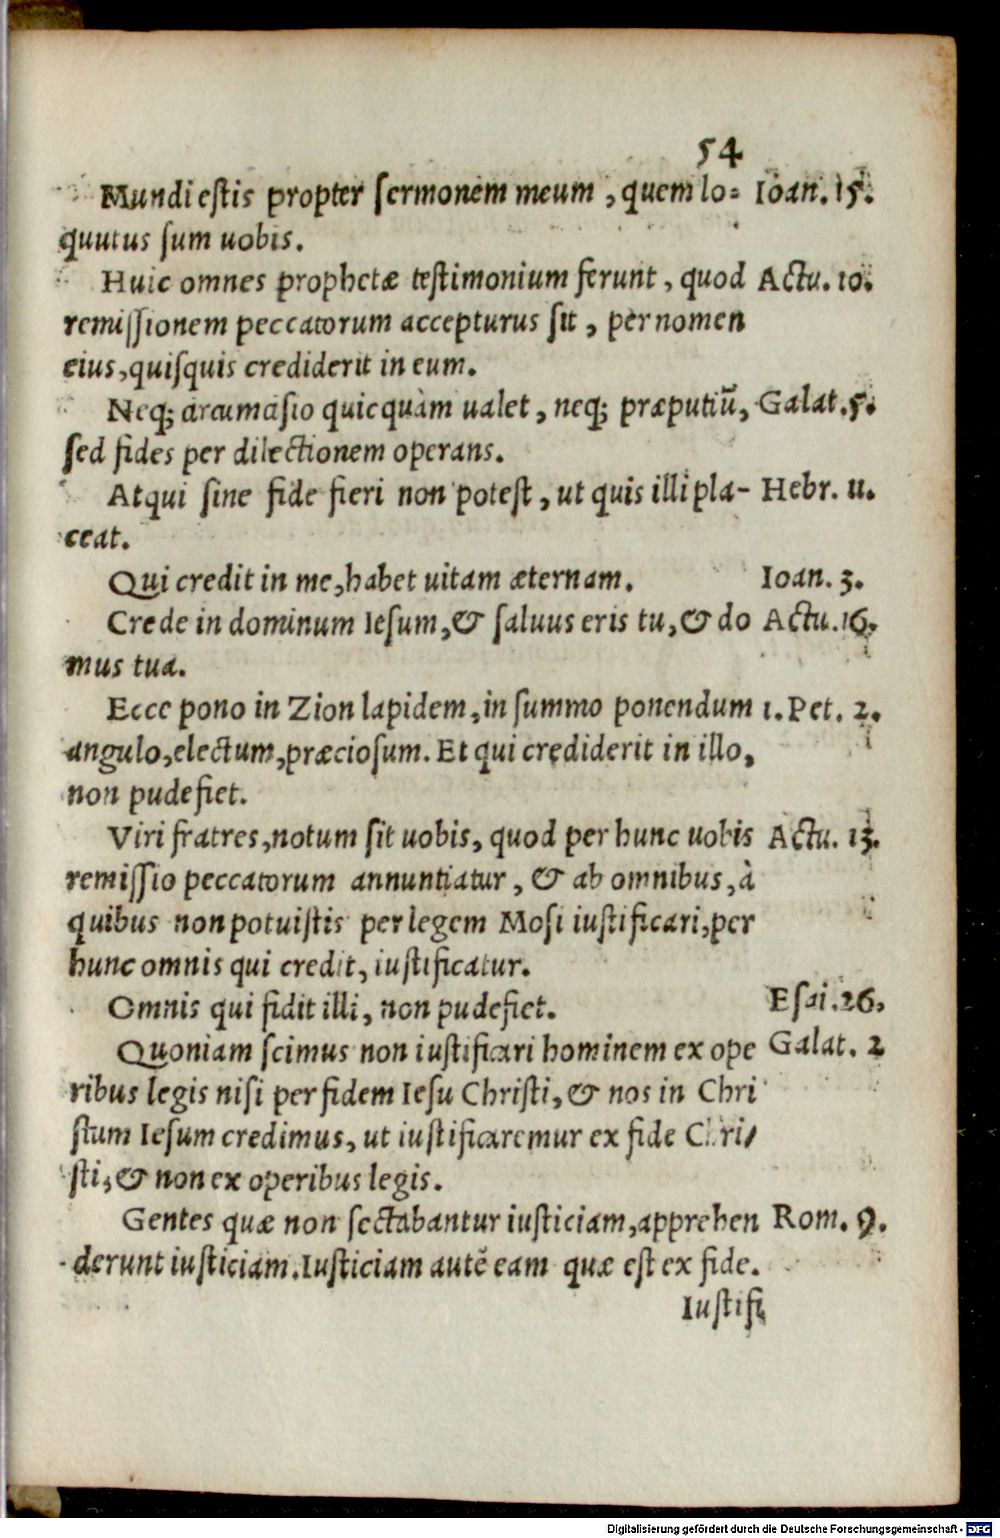 54
Mundi estis propter sermonem meum, quem lo= Ioan. 15.
quutus sum uobis.
Huic omnes prophetæ testimonium ferunt, quod Actu. 10.
remissionem peccatorum accepturus sit, per nomen
eius, quisquis crediderit in eum.
Neq; circumcisio quicquàm ualet, neq; præputiū, Galat. 5.
sed fides per dilectionem operans.
Atqui sine fide fieri non potest, ut quis illi pla- Hebr. 11.
ceat.
Qui credit in me, habet uitam æternam. Ioan. 3.
Crede in dominum Iesum, & saluus eris tu, & do Actu. 16.
mus tua.
Ecce pono in Zion lapidem, in summo ponendum 1. Pet. 2.
angulo, electum, præciosum. Et qui crediderit in illo,
non pudefiet.
Viri fratres, notum sit uobis, quod per hunc uobis Actu. 13.
remissio peccatorum annuntiatur, & ab omnibus, à
quibus non potuistis per legem Mosi iustificari, per
hunc omnis qui credit, iustificatur.
Omnis qui fidit illi, non pudefiet. Esai. 26,
Quoniam scimus non iustificari hominem ex ope Galat. 2
ribus legis nisi per fidem Iesu Christi, & nos in Chri
stum Iesum credimus, ut iustificaremur ex fide Chri/
sti, & non ex operibus legis.
Gentes quæ non sectabantur iusticiam, apprehen Rom. 9.
derunt iusticiam. Iusticiam autē eam quæ est ex fide.
Iustifi
Digitalisierung gefördert durch die Deutsche Forschungsgemeinschaft - DFG